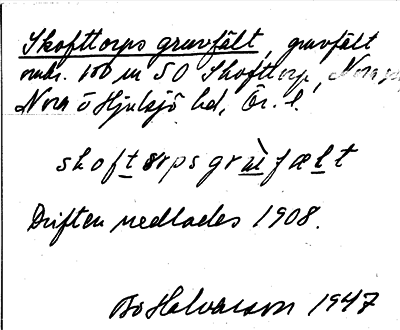 Skofttorps gruvfält, gruvfält
omkr. 100 m SO Skofttorp, Nora
Nora o Hjulsjö hd, Ör. l.
skoftørpsgrʉ̀fælt
Driften nedlades 1908.
Bo Halvarson 1947